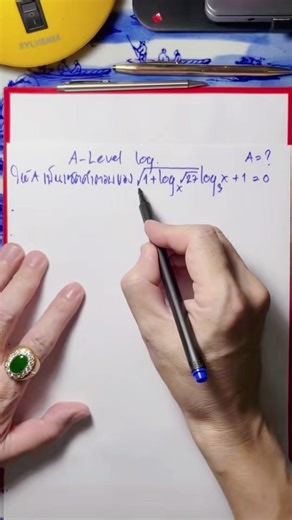 SYLVANIA
A-Level log. A = ?
ให้ A เป็นเซตคำตอบของ √(1 + log_x √27) log_3 x + 1 = 0